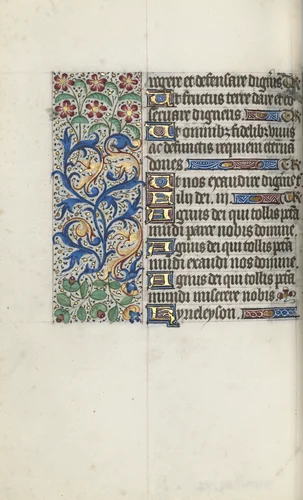 regere et defensare digneris Te
Ut fructus terre dare et co
servare digneris.
Ut omnibus fidelibus vivis
ac defunctis requiem eterna
dones.
Ut nos exaudire digneris
Fily dei. ij.
Agnus dei qui tollis pcta
mudi parce nobis domine.
Agnus dei qui tollis pcta
mudi exaudi nos domine.
Agnus dei qui tollis pcta
mundi miserere nobis.
Kyrieleyson.